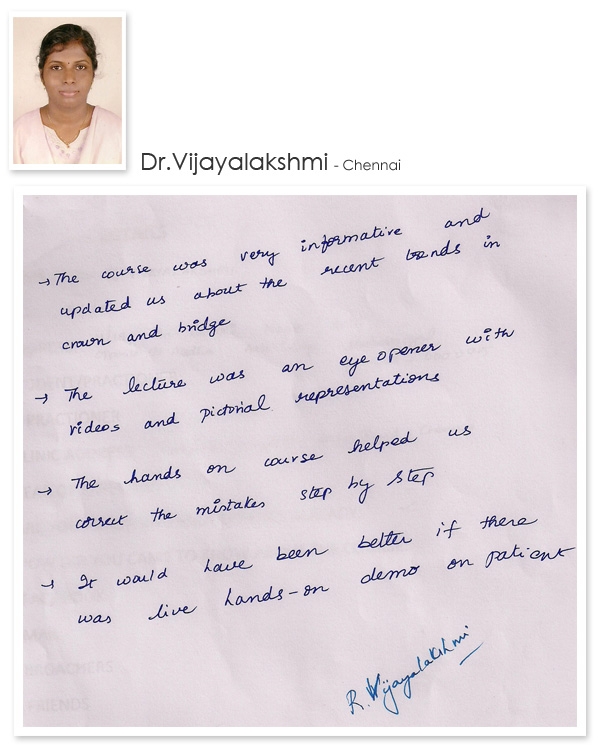 Dr.Vijayalakshmi - Chennai
→ The course was very informative and
updated us about the recent trends in
crown and bridge
→ The lecture was an eye opener with
videos and pictorial representations
→ The hands on course helped us
correct the mistakes step by step
→ It would have been better if there
was live hands-on demo on patient
R. Vijayalakshmi
BROACHERS
FRIENDS